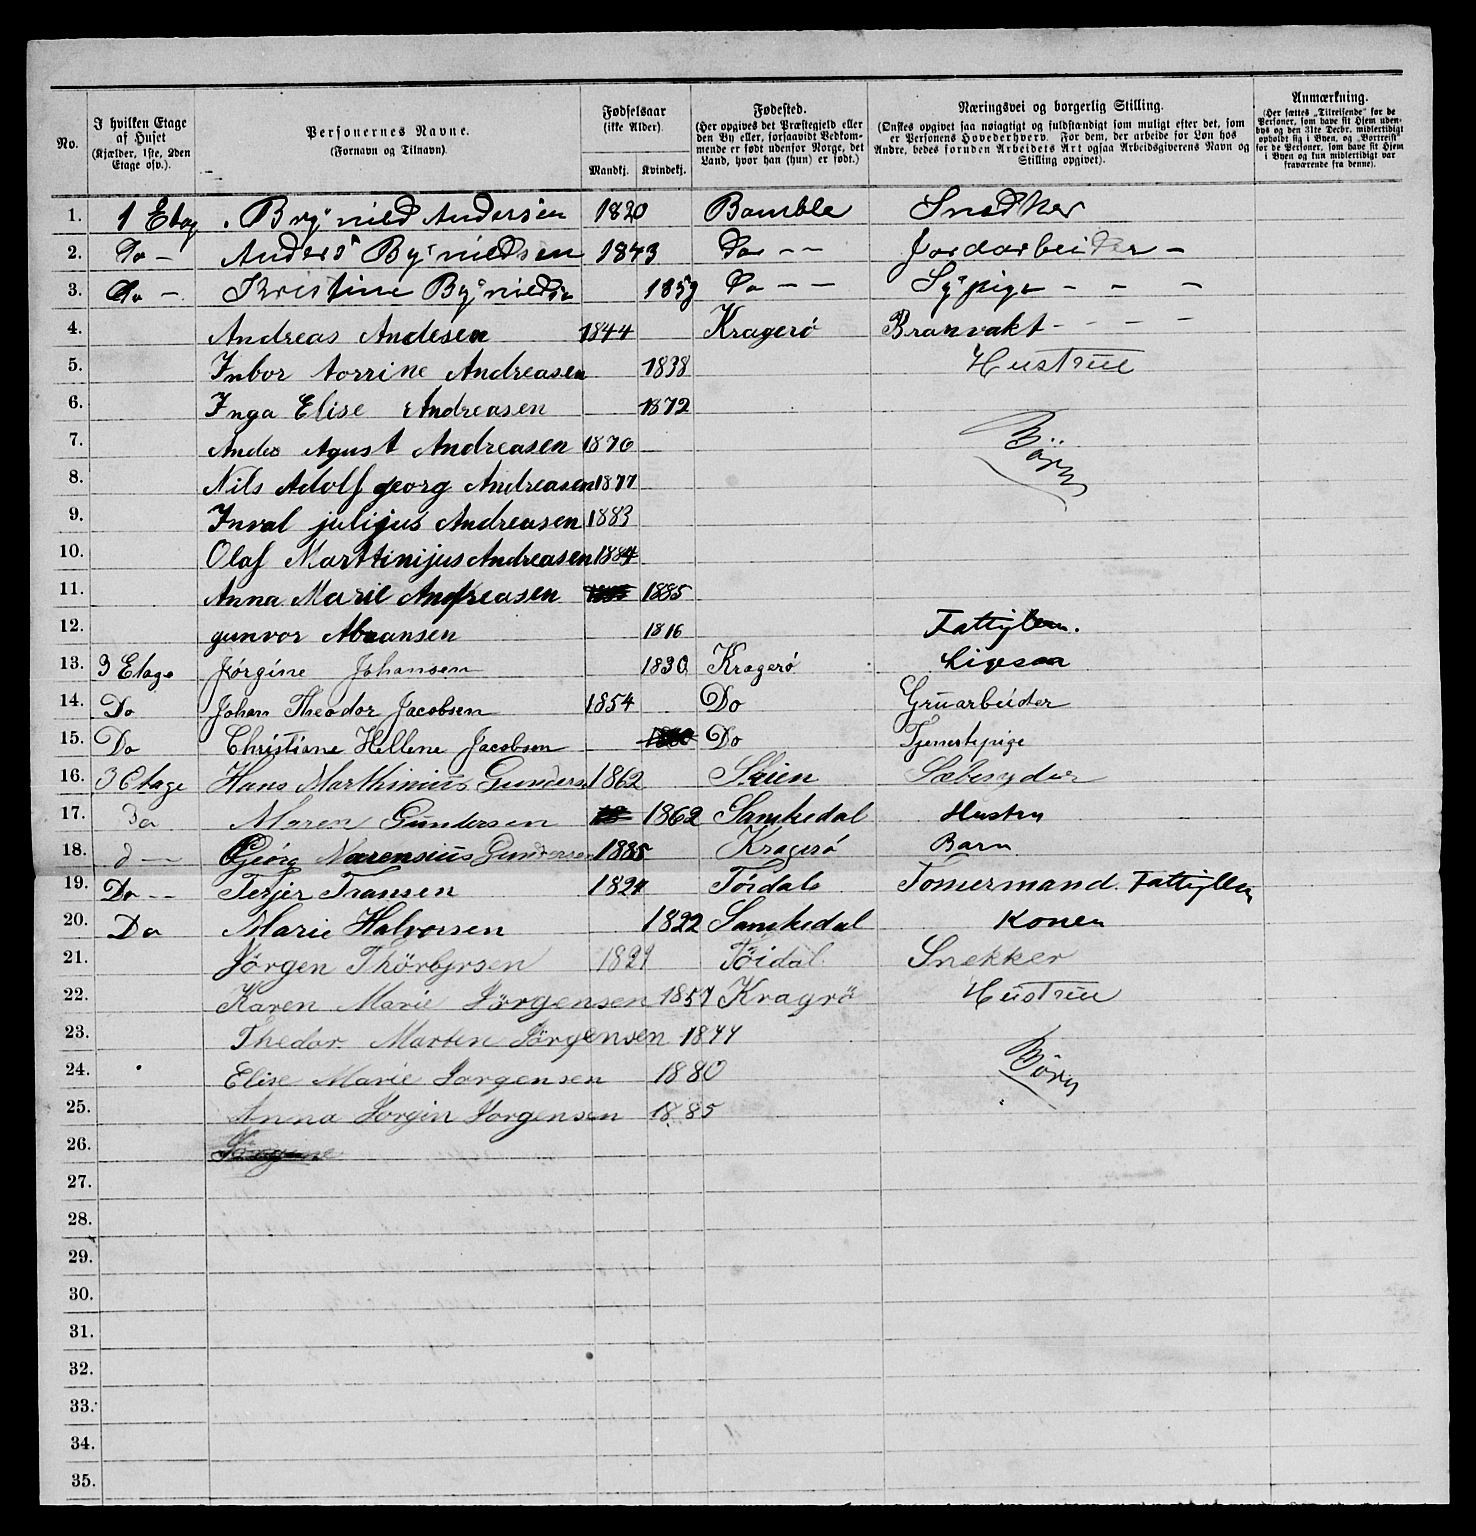 No. I hvilken Etage af Huset (Kjælder, 1ste, 2den Etage osv.). Personernes Navne. (Fornavn og Tilnavn). Fødselsaar (ikke Alder). Mandkj. Kvindekj. Fødested. (Her opgives det Præstegjeld eller den By eller, forsaavidt Vedkommende er født udenfor Norge, det Land, hvor han (hun) er født.) Næringsvei og borgerlig Stilling. (Ønskes opgivet saa nøiagtigt og fuldstændigt som muligt efter det, som er Personens Hovederhverv. For dem, der arbeide for Løn hos Andre, bedes foruden Arbeidets Art ogsaa Arbeidsgiverens Navn og Stilling opgivet). Anmærkning. (Her sættes „Tilreisende" for de Personer, som have sit Hjem udenbys og den 31te Decbr. midlertidigt opholdt sig i Byen, og „Bortreist" for de Personer, som have sit Hjem i Byen og kun midlertidigt var fraværende fra denne).
1. 1 Etag Andersen 1820 Bamble Snedker
2. Do — Anders 1843 Do — — Jordarbeider —
3. Do — Kristine 1859 Do — — Sypige — — —
4. Andreas Andesen 1844 Kragerø Branvakt — — — —
5. Inbor torrine Andreasen 1838 Hustrue
6. Inga Elise Andreasen 1872
7. Andes Agust Andreasen 1870 Børn
8. Nils Adolf georg Andreasen 1877
9. Inval julijus Andreasen 1883
10. Olaf Marttinijus Andreasen 1884
11. Anna Marie Andreasen 1885
12. gunvor 1816 Fattiglem.
13. 3 Etage Jörgine Johansen 1830 Kragerö Ligesaa
14. Do Johan Theodor Jacobsen 1854 Do Gruarbeider
15. Do Christiane Hellene Jacobsen Do Tjenestepige
16. 3 Etage Hans Marthinius Gunders 1862 Skien Sæbesyder
17. Do Maren Gundersen 1862 Sannkedal Hustru
18. d — Georg Gundersen 1885 Kragerø Barn
19. Do — Terjer Fransen 1824 Tördal Tømermand. Fattiglem
20. Do Marie Halvorsen 1822 Sannkedal Konen
21. Jörgen Thörbjrsen 1821 Töidal Snekker
22. Karen Marie Jörgensen 1857 Kragrö Hustrue
23. Thedor Marten Jörgensen 1877
24. Elise Marie Jorgensen 1880 Börn
25. Anna Jorgin Jorgensen 1885
26.
27.
28.
29.
30.
31.
32.
33.
34.
35.